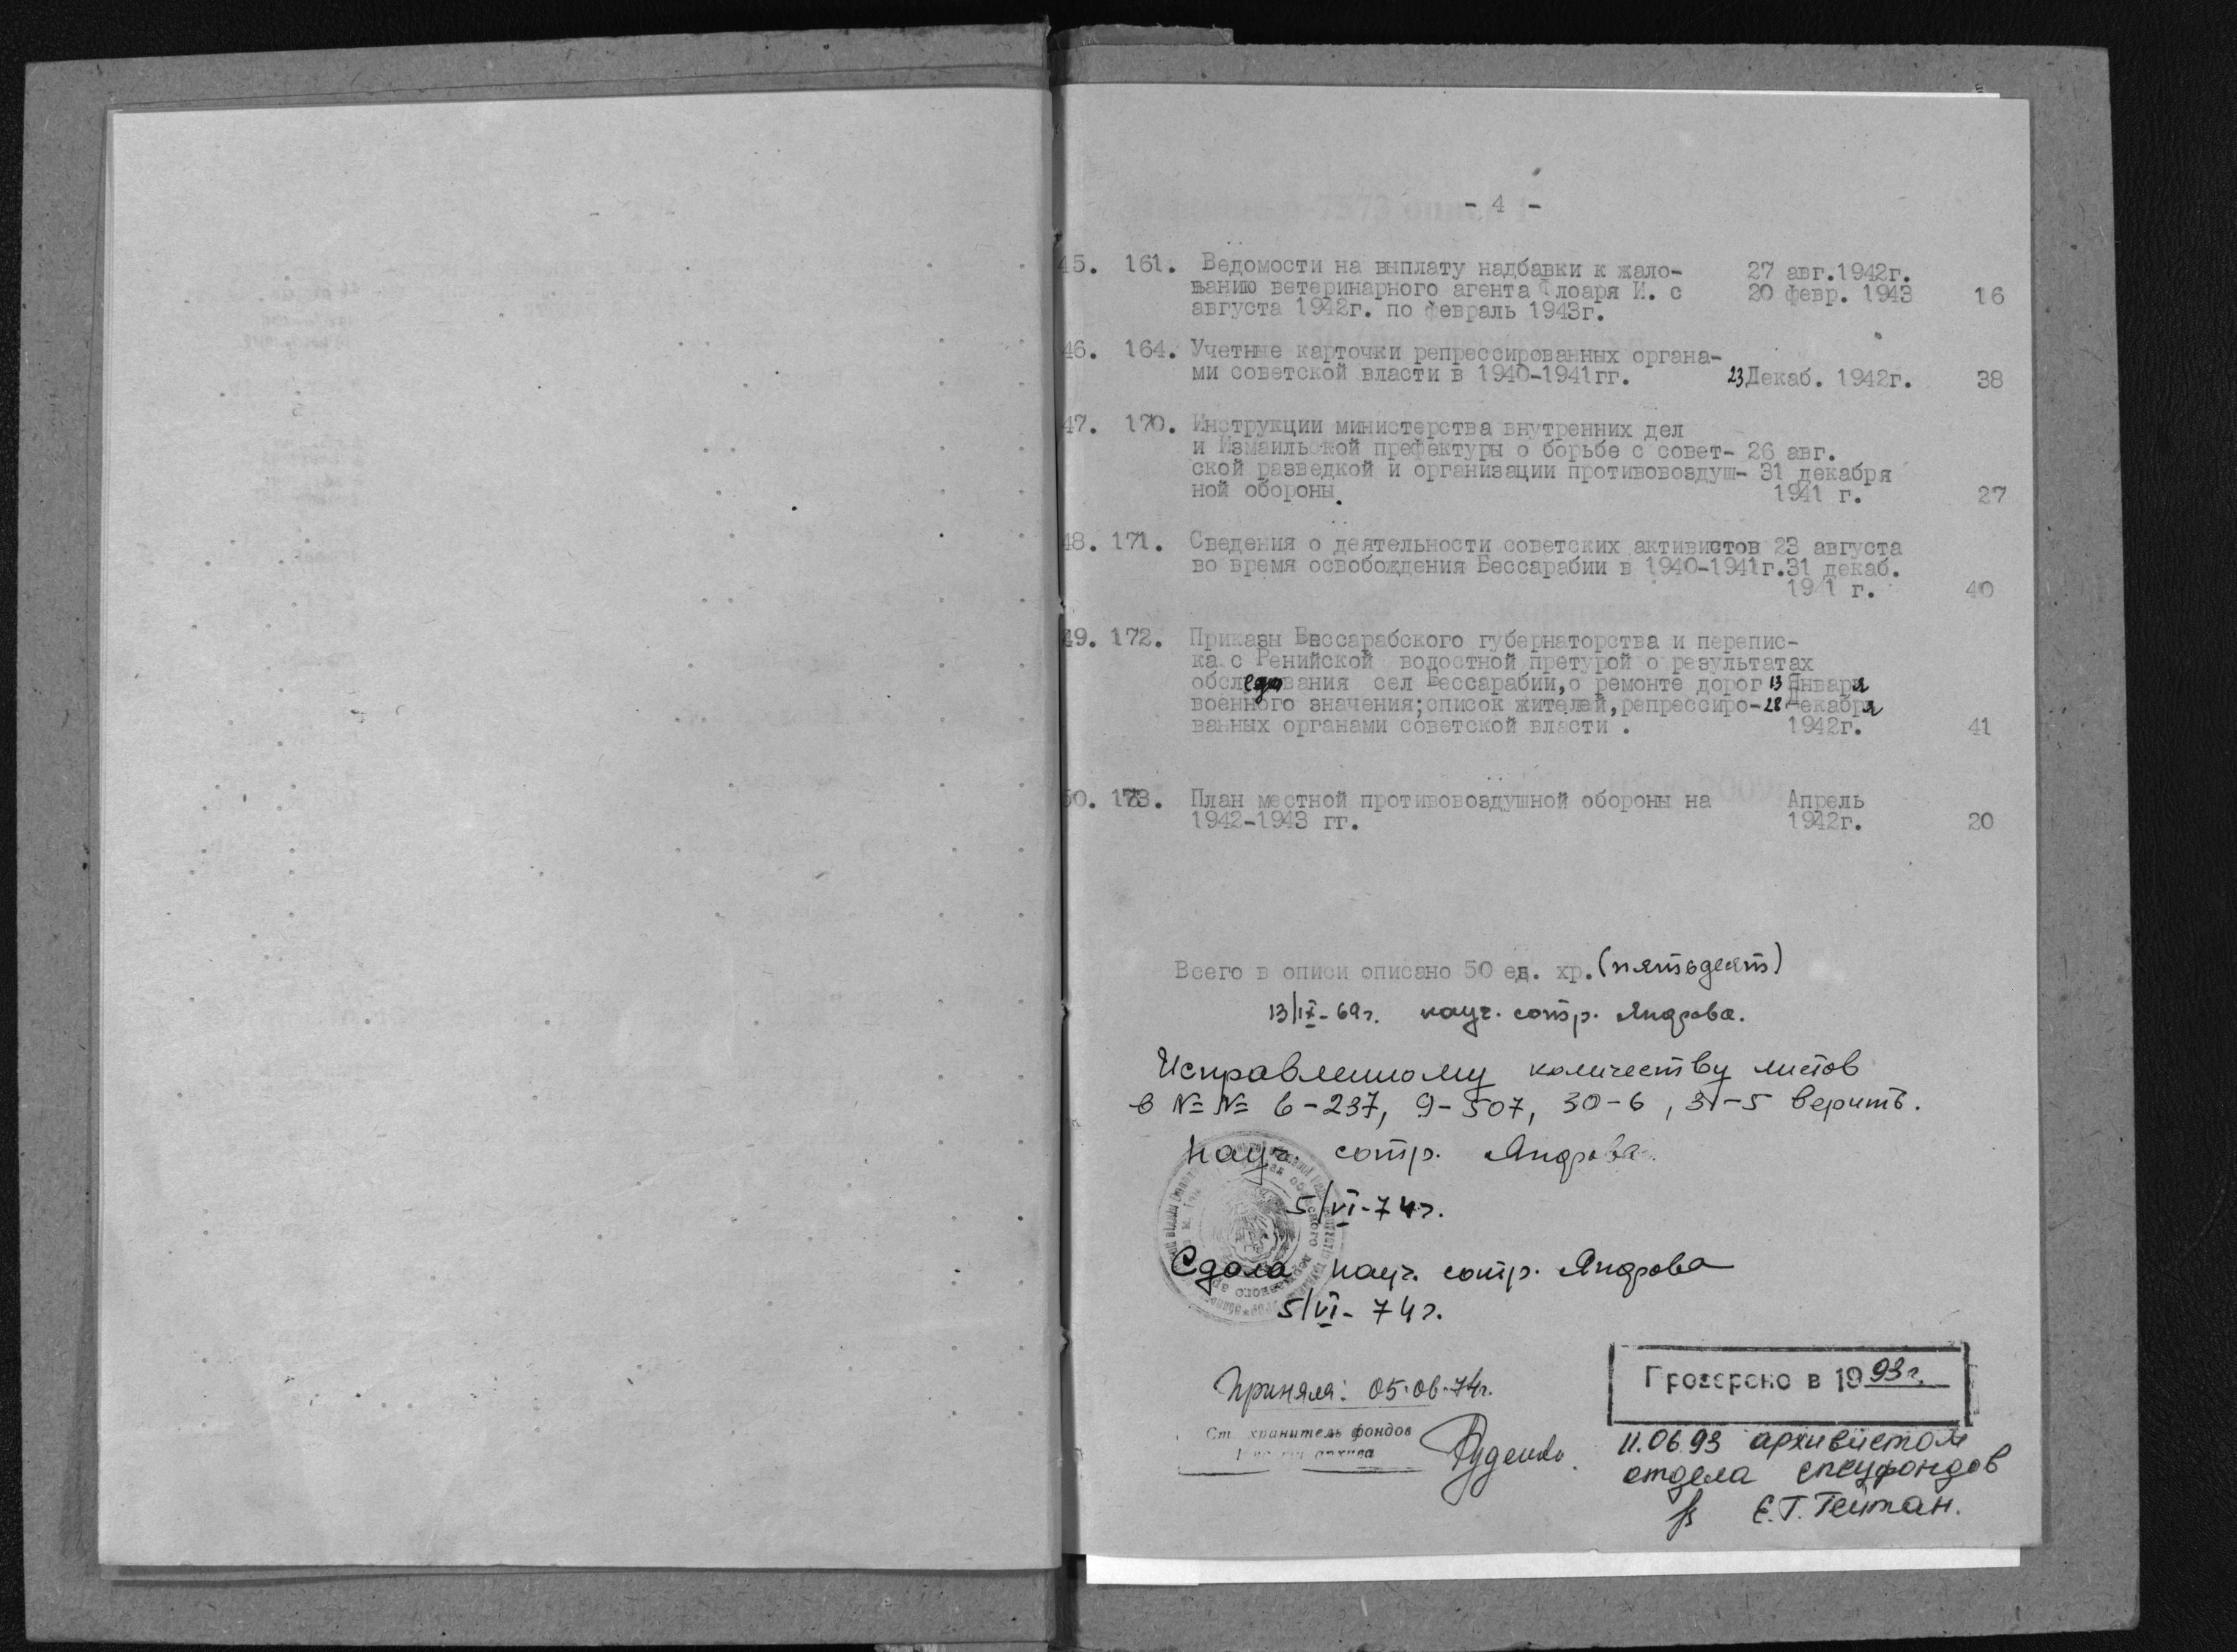 - 4 -
45. 161. Ведомости на выплату надбавки к жало- 27 авг.1942г.
ванию ветеринарного агента Флоаря И. с 20 февр. 1943 16
августа 1942г. по февраль 1943г.
46. 164. Учетные карточки репрессированных органа-
ми советской власти в 1940-1941гг. 23 Декаб. 1942г. 38
47. 170. Инструкции министерства внутренних дел
и Измаильской префектуры о борьбе с совет- 26 авг.
ской разведкой и организации противовоздуш- 31 декабря
ной обороны. 1941 г. 27
48. 171. Сведения о деятельности советских активистов 23 августа
во время освобождения Бессарабии в 1940-1941г. 31 декаб.
1941 г. 40
49. 172. Приказы Бессарабского губернаторства и перепис-
ка с Ренийской водостной претурой о результатах
обследования сел Бессарабии, о ремонте дорог 13 Января
военного значения; список жителей, репрессиро- 28 Декабря
ванных органами советской власти . 1942г. 41
50. 173. План местной противовоздушной обороны на Апрель
1942-1943 гг. 1942г. 20
Всего в описи описано 50 ед. хр. (пятьдесят)
13/IX-69г. науч. сотр. Яндрова.
Исправленному количеству листов
в №№ 6-237, 9-507, 30-6, 31-5 верить.
Науч. сотр. Яндрова.
5/VI-74г.
Сдала науч. сотр. Яндрова
5/VI-74г.
Приняла: 05.06.74г.
Ст. хранитель фондов
архива Руденко.
Проверено в 1993г.
11.06.93 архивистом
отдела спецфондов
Е.Т. Гейман.